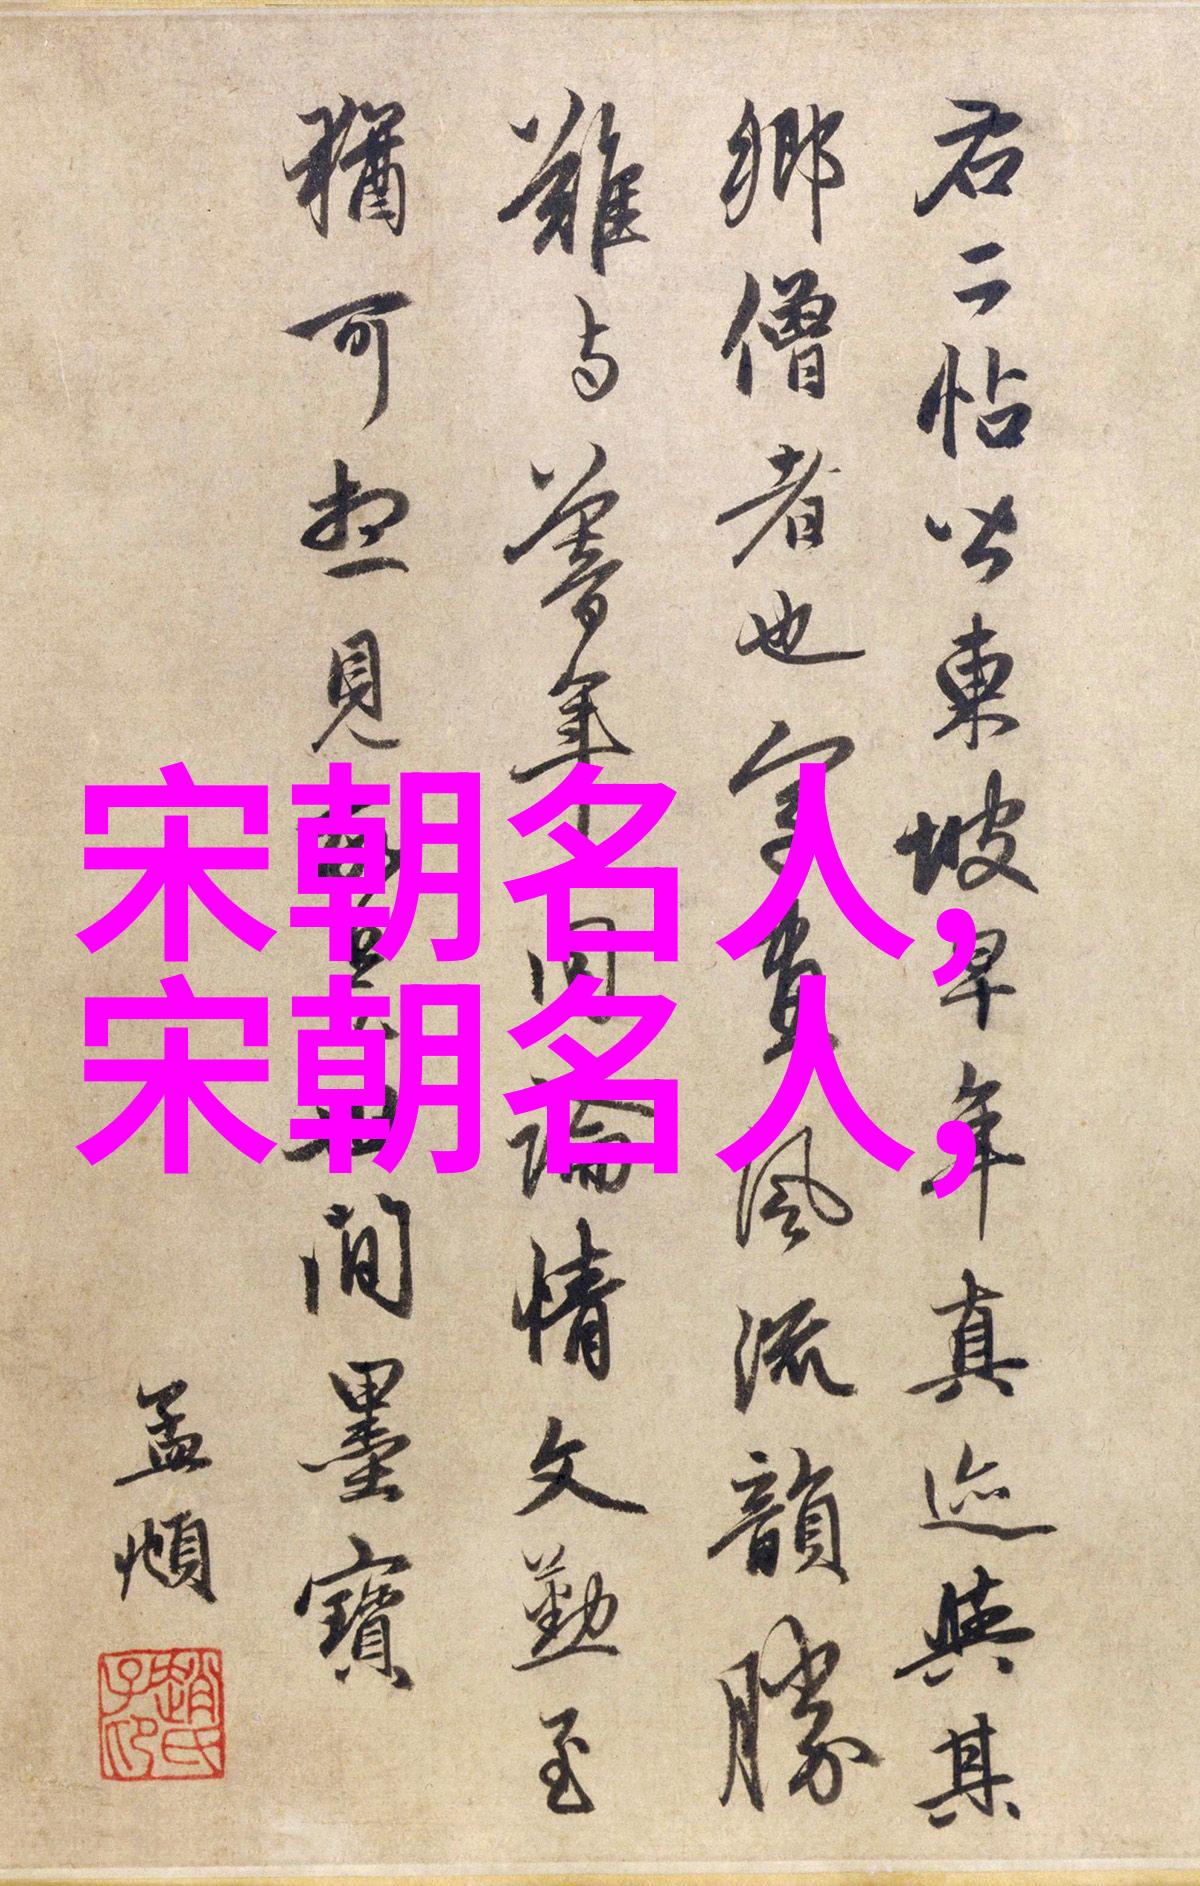 右二帖皆東坡早年真迹與其
鄉僧者也字畫風流韻勝
難与暮年同論情文勤至
猶可想見故是世間墨寶
孟頫
趙氏子昂
宋朝名人,
宋朝名人,